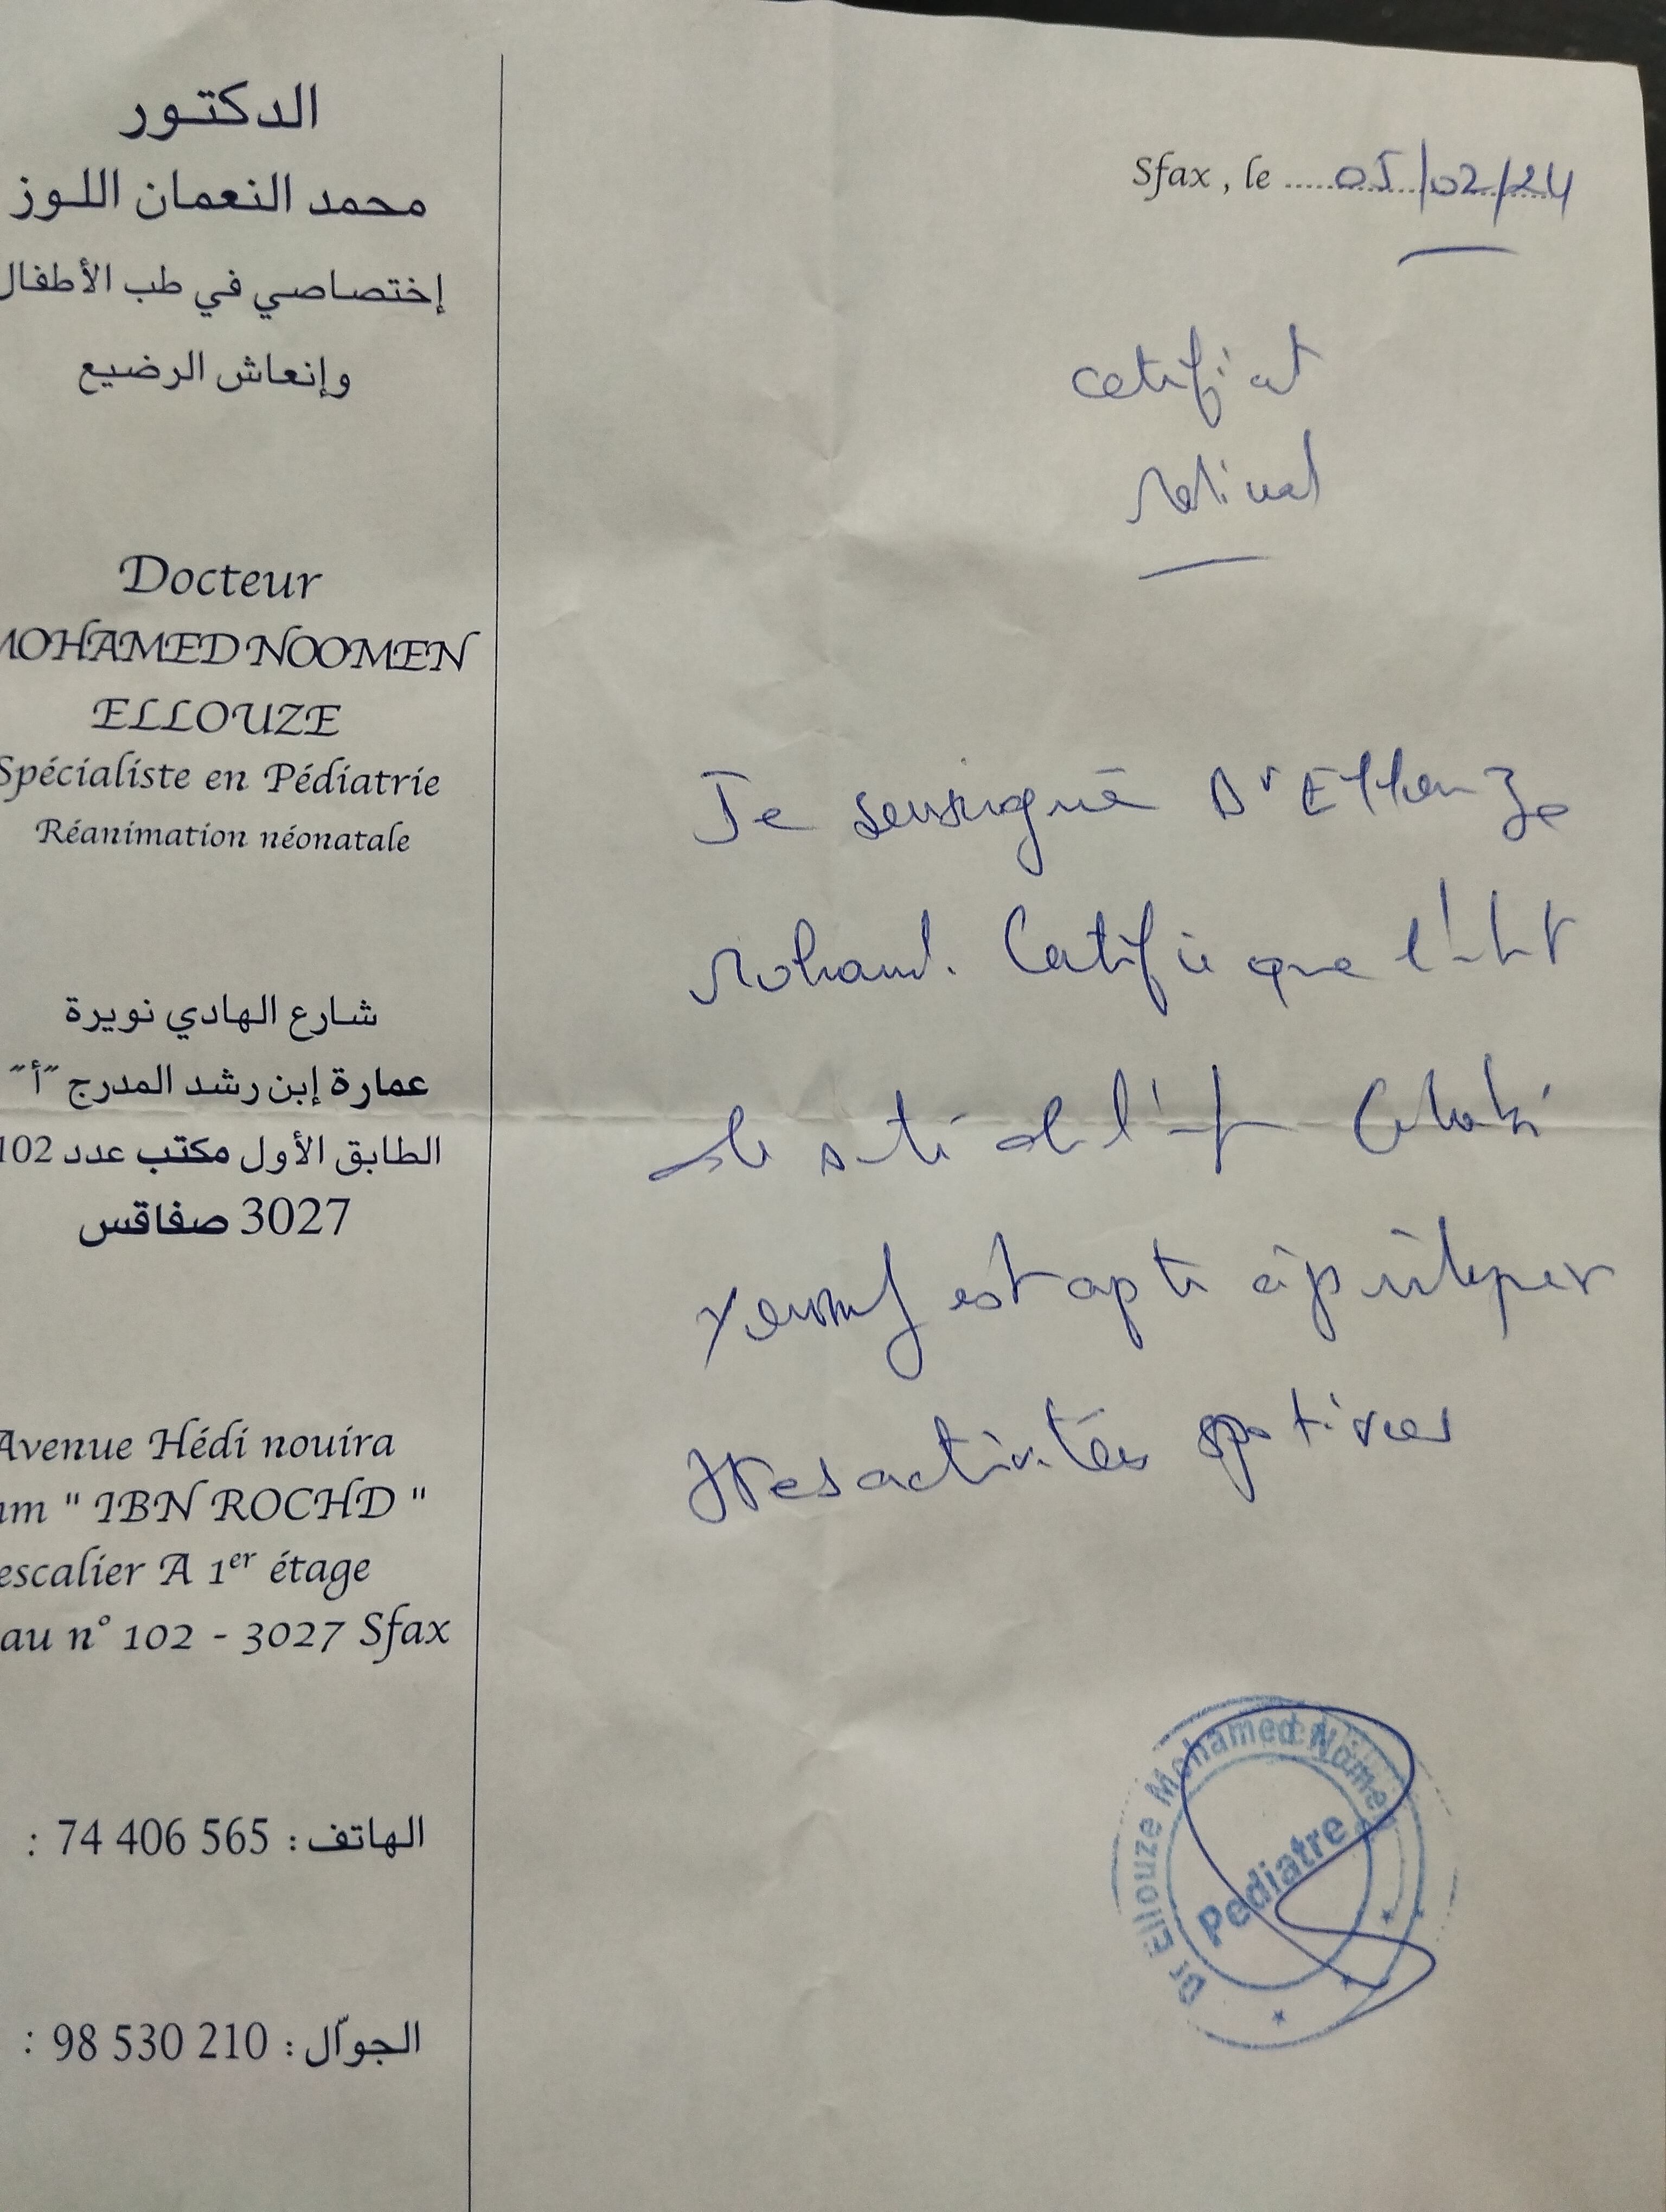 الدكتور
محمد النعمان اللوز
إختصاصي في طب الأطفال
وإنعاش الرضيع
Docteur
MOHAMED NOOMEN
ELLOUZE
Spécialiste en Pédiatrie
Réanimation néonatale
شارع الهادي نويرة
عمارة إبن رشد المدرج "أ"
الطابق الأول مكتب عدد 102
3027 صفاقس
Avenue Hédi nouira
"IBN ROCHD"
escalier A 1er étage
n° 102 - 3027 Sfax
الهاتف : 74 406 565 :
الجوّال : 98 530 210 :
Sfax, le 05/02/24
certificat
médical
Je soussigné Dr Ellouze
Mohamed. Certifie que l'état
de santé de l'enf
Youssef est apte à participer
activités sportives
Dr Ellouze Mohamed Nomen
Pediatre